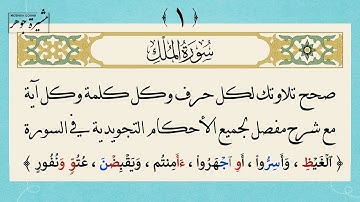 ﴿ ١ ﴾
مشيرة جوهر
سُورَةُ الْمُلْكِ
صحح تلاوتك لكل حرف وكل كلمة وكل آية
مع شرح مفصل لجميع الأحكام التجويدية في السورة
﴿ ٱلْغَيْظِ ، وَأَسِرُّوا۟ ، أَوِ ٱجْهَرُوا۟ ، ءَأَمِنتُم ، وَيَقْبِضْنَ ، عُتُوٍّ وَنُفُورٍ ﴾